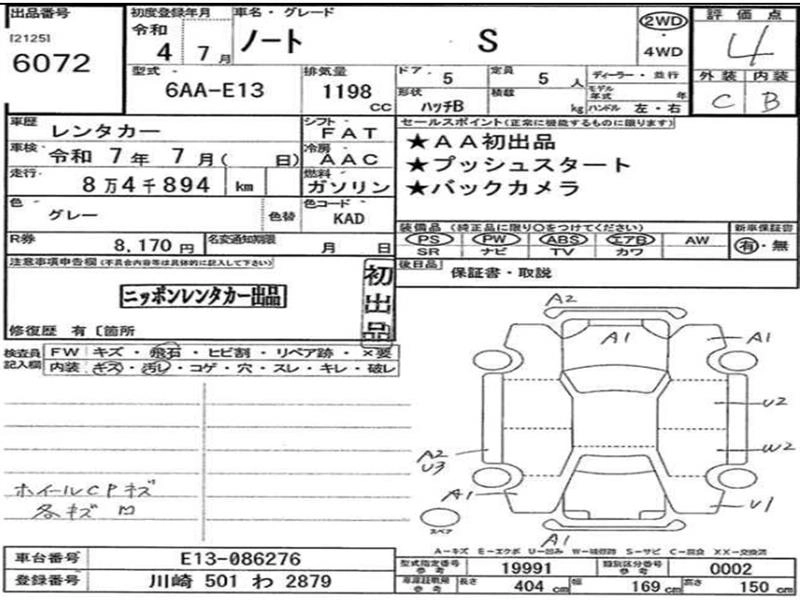 出品番号
[2125]
6072
初度登録年月
令和
4 7月
車名・グレード
ノート S
2WD
4WD
評価点
4
外装 内装
C B
型式
6AA-E13
排気量
1198
cc
ドア 5
定員 5 人
ディーラー・並行
形状
ハッチB
積載
kg
モデル年式 年
ハンドル 左・右
車歴
レンタカー
シフト
FAT
セールスポイント(正常に機能するものに限ります)
車検
令和 7年 7月( 日)
冷房
AAC
★AA初出品
走行
8万4千894 km
燃料
ガソリン
★プッシュスタート
★バックカメラ
色
グレー
色替
色コード
KAD
装備品 (純正品に限り○をつけてください)
新車保証書
PS PW ABS エアB AW
有・無
SR ナビ TV カワ
R券
8,170 円
名変通知期限
月 日
後日品
保証書・取説
注意事項申告欄(不具合内容等は具体的に記入して下さい)
ニッポンレンタカー出品
初出品
修復歴 有 〔箇所
検査員記入欄
FW キズ・飛石・ヒビ割・リペア跡・×要
内装 キズ・汚レ・コゲ・穴・スレ・キレ・破レ
A2
A1
A1
U2
W2
A2
U3
A1
U1
スペア
A1
ホイールCPキズ
各キズ凹
A-キズ E-エクボ U-凹み W-補修跡 S-サビ C-腐食 XX-交換済
車台番号
E13-086276
登録番号
川崎 501 わ 2879
型式指定番号
参考
19991
類別区分番号
参考
0002
車庫証明用
参考
長さ 404 cm 幅 169 cm 高さ 150 cm